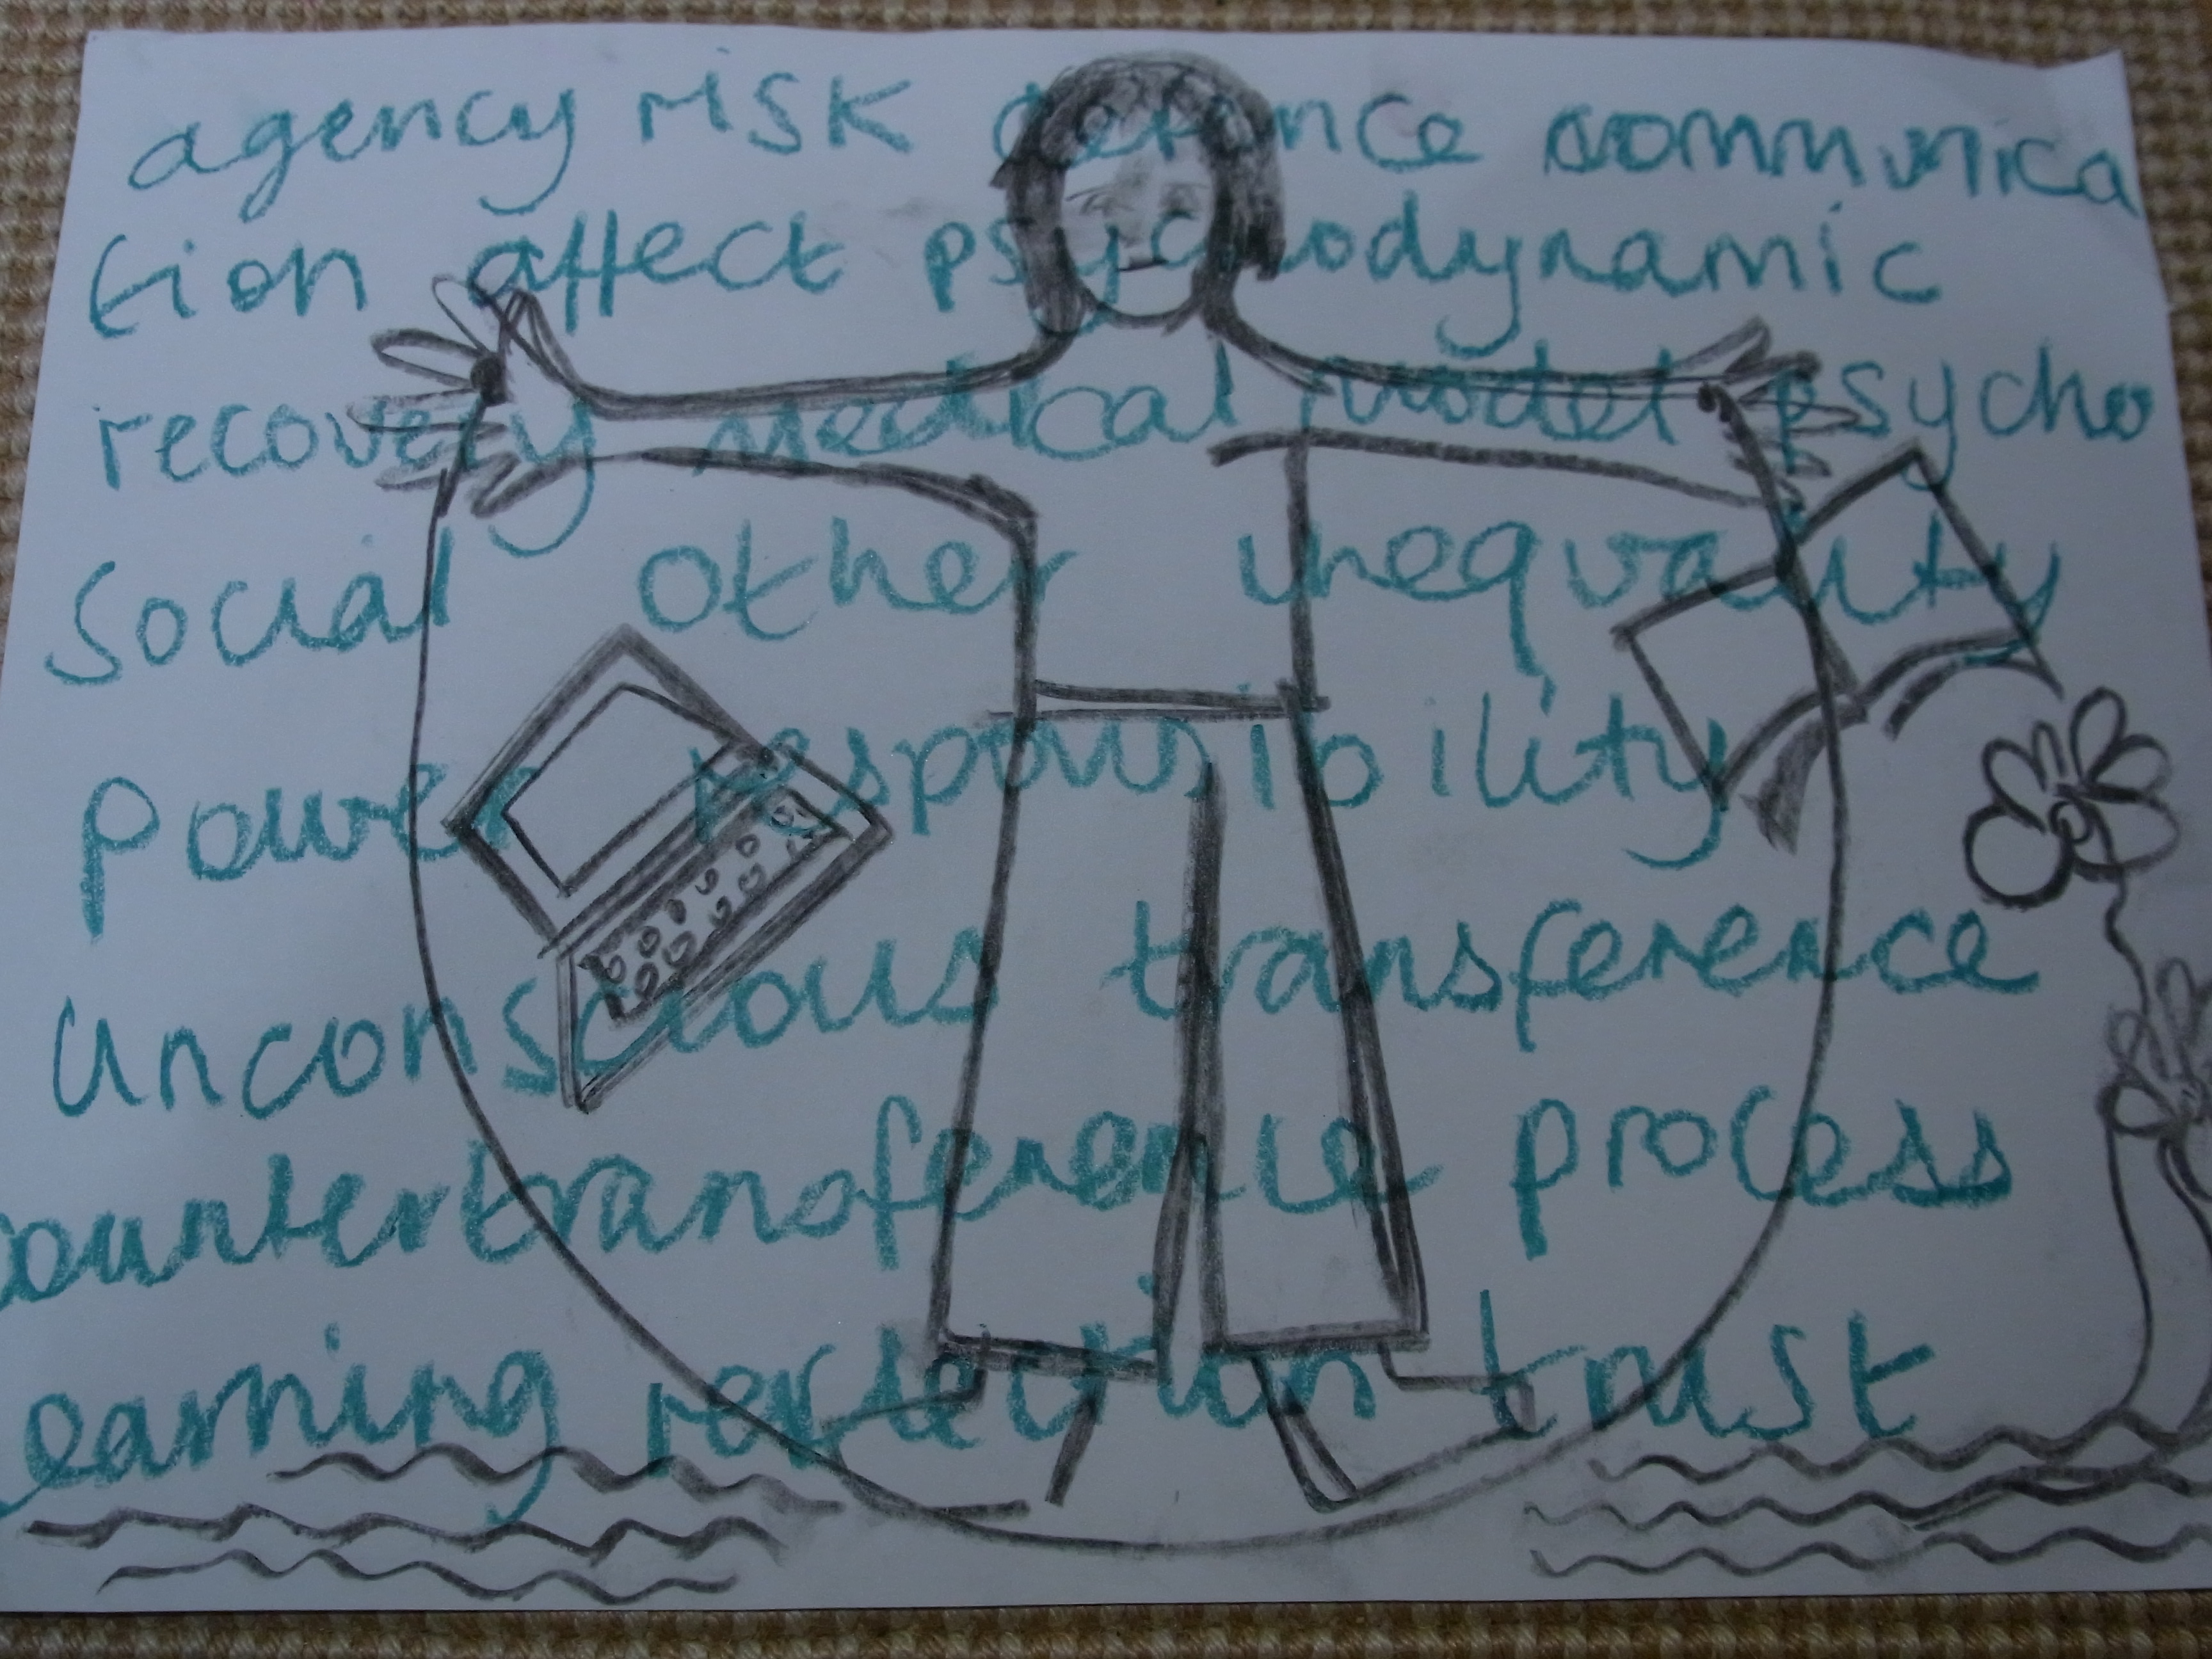 agency risk defence communica
tion affect psychodynamic
recovery medical model psycho
social other inequality
power responsibility
unconscious transference
countertransference process
learning reflection trust